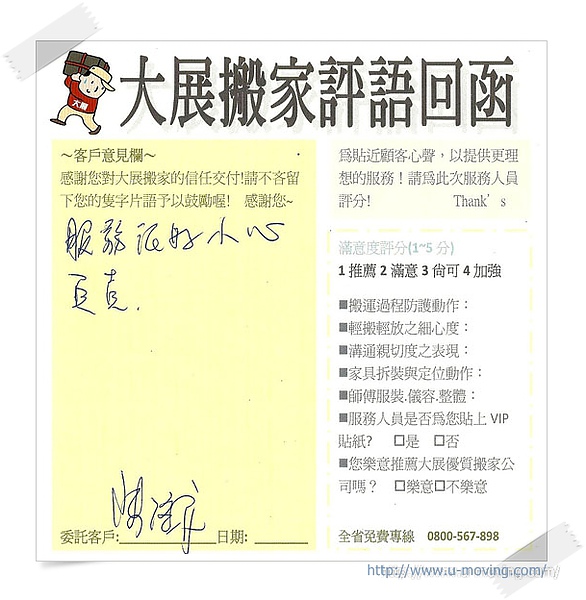 大展搬家評語回函
大展
～客戶意見欄～
感謝您對大展搬家的信任交付!請不吝留
下您的隻字片語予以鼓勵喔! 感謝您~
服務很好小心
負責.
委託客戶: 日期:
為貼近顧客心聲，以提供更理
想的服務！請為此次服務人員
評分! Thank’s
滿意度評分(1~5 分)
1 推薦 2 滿意 3 尚可 4 加強
■搬運過程防護動作：
■輕搬輕放之細心度：
■溝通親切度之表現：
■家具拆裝與定位動作：
■師傅服裝.儀容.整體：
■服務人員是否為您貼上 VIP
貼紙? □是 □否
■您樂意推薦大展優質搬家公
司嗎？ □樂意□不樂意
全省免費專線 0800-567-898
http://www.u-moving.com/